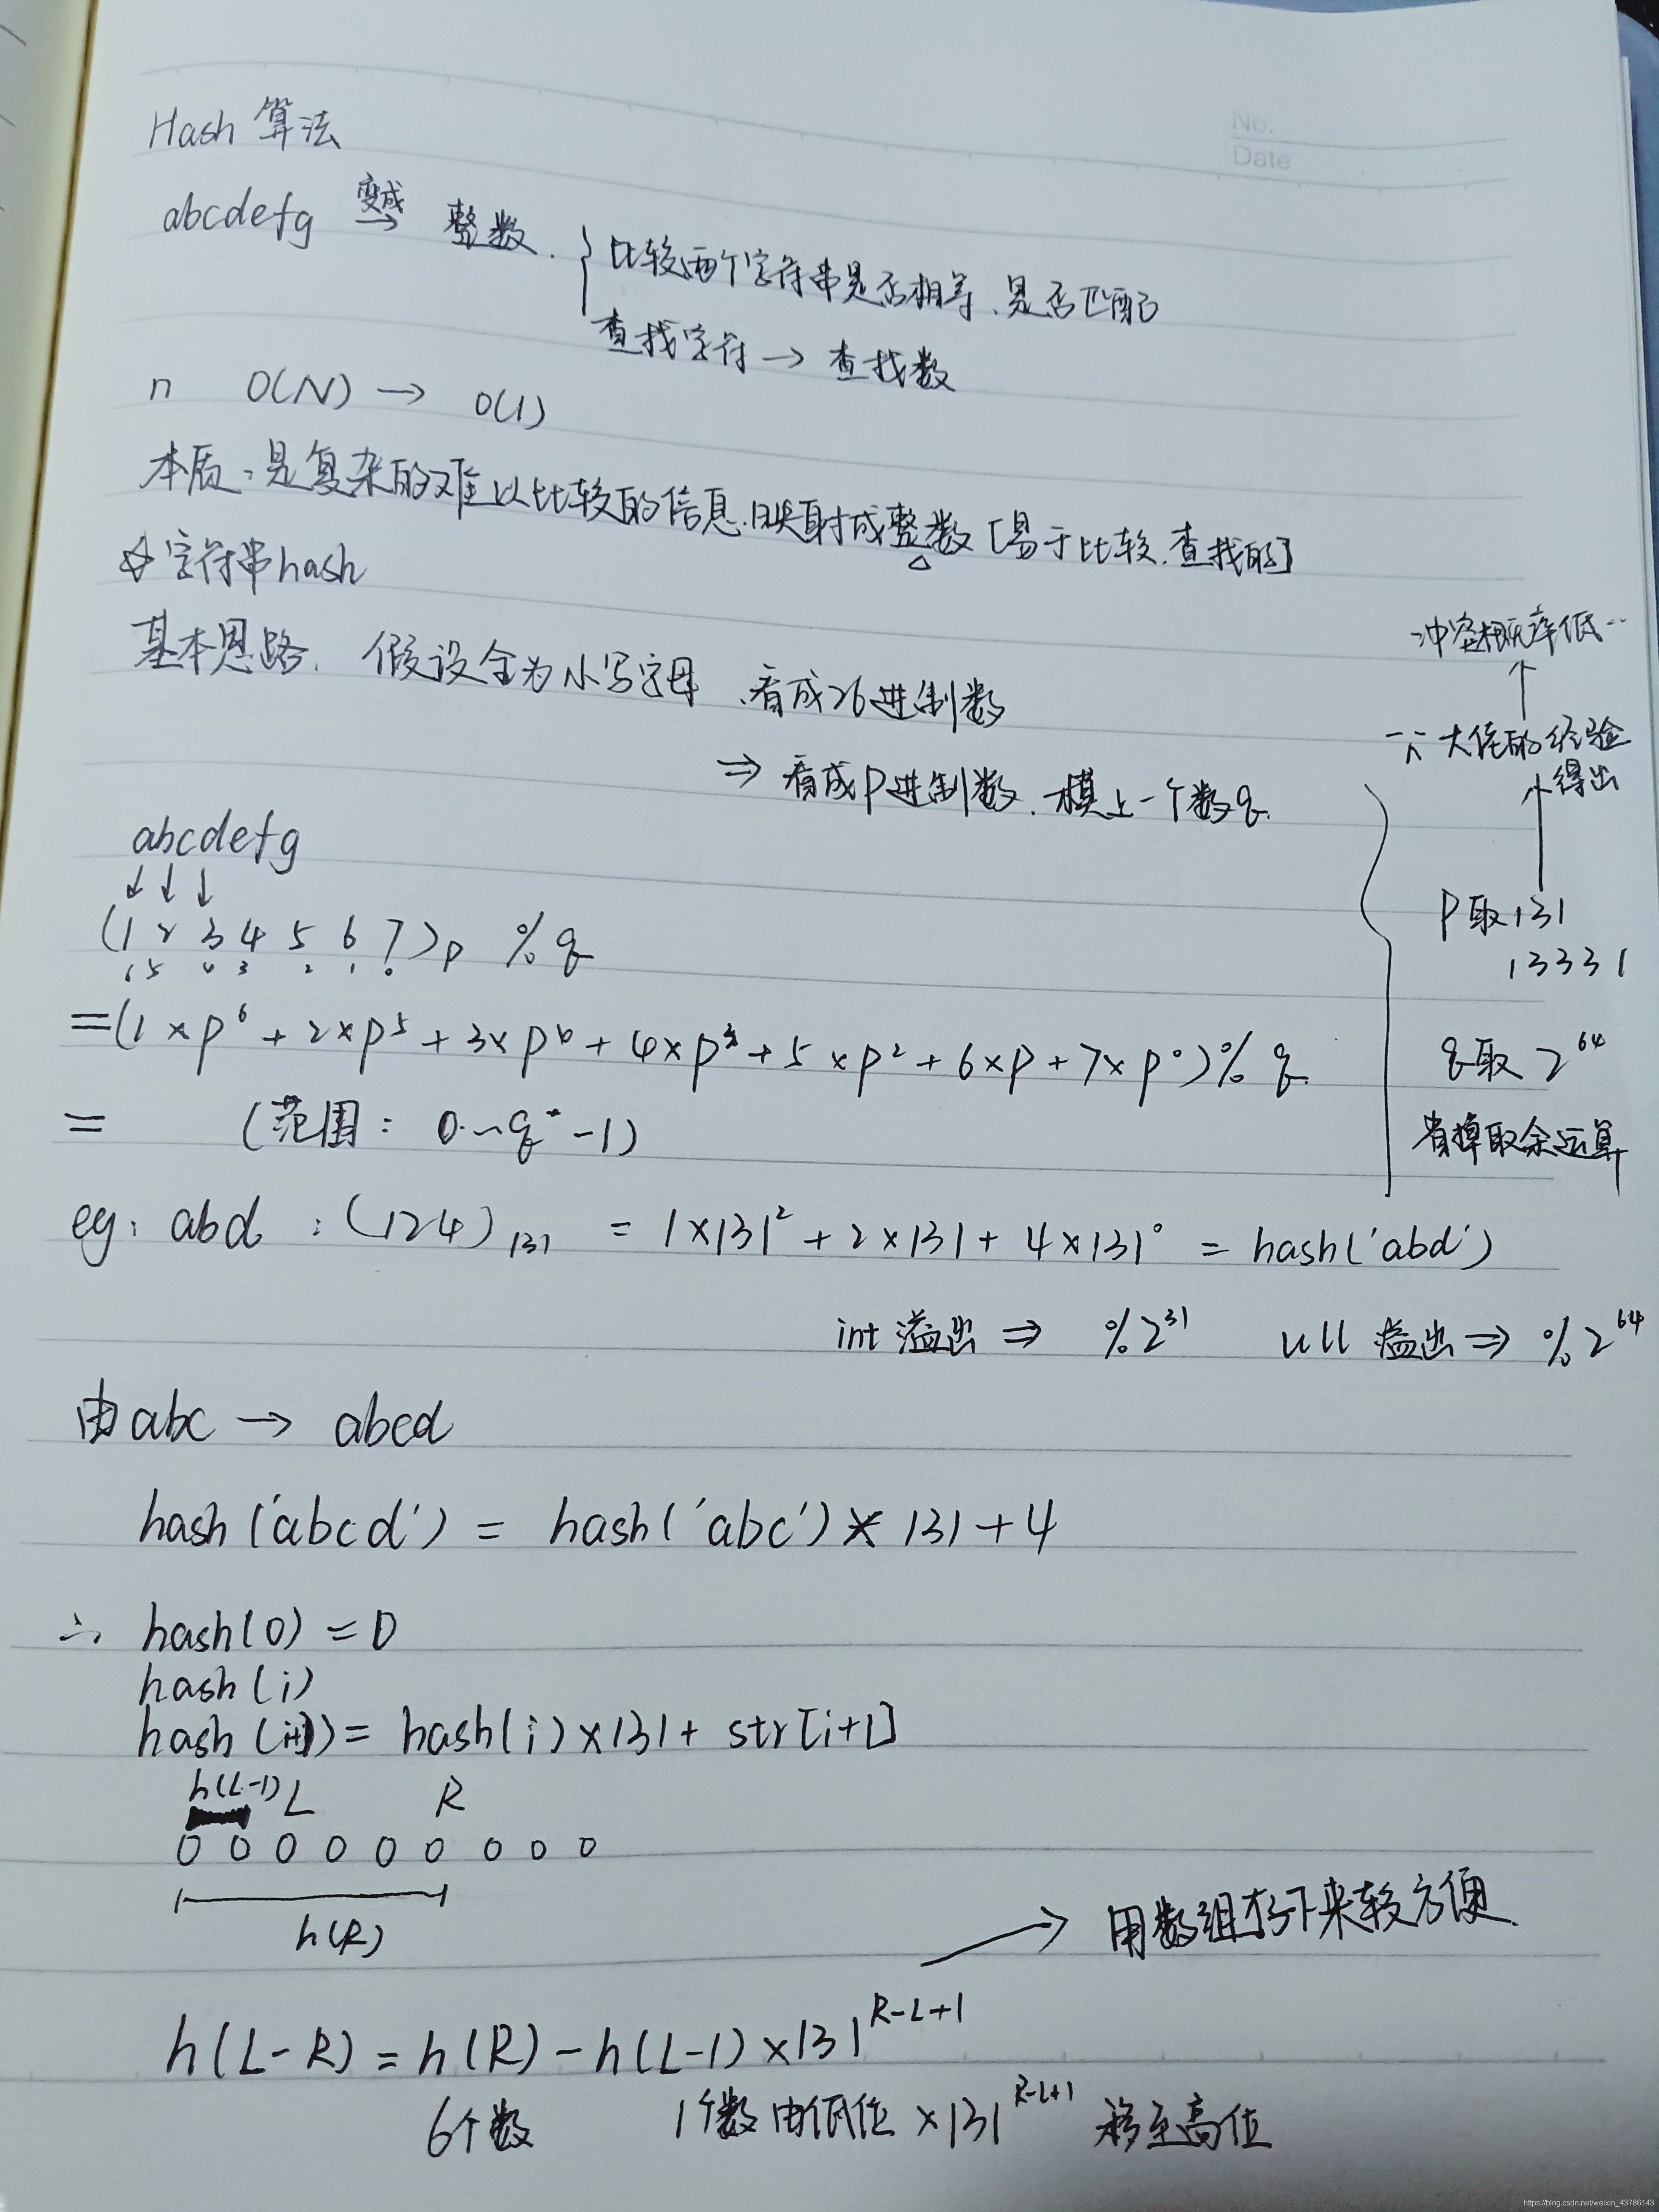 No.
Date
Hash 算法
abcdefg 变成→ 整数. { 比较两个字符串是否相等、是否匹配
查找字符 → 查找数
n O(N) → O(1)
本质:是复杂的难以比较的信息.映射成整数[易于比较.查找的]
☆字符串hash
基本思路. 假设全为小写字母、看成26进制数
⇒ 看成P进制数. 模上一个数q.
冲突概率低..
↑
大佬的经验
得出
↑
P取131
13331
q取 2^64
省掉取余运算
abcdefg
↓ ↓ ↓
(1 2 3 4 5 6 7)p % q
6 5 4 3 2 1 0
=(1×p^6 + 2×p^5 + 3×p^4 + 4×p^3 + 5×p^2 + 6×p + 7×p^0)% q.
= (范围: 0~q-1)
eg: abd : (124)131 = 1×131^2 + 2×131 + 4×131^0 = hash('abd')
int 溢出 ⇒ %2^31 ull 溢出 ⇒ %2^64
由abc → abcd
hash('abcd') = hash('abc')×131+4
∴ hash(0) = 0
hash(i)
hash(i+1) = hash(i)×131+ str[i+1]
h(L-1) L R
0 0 0 0 0 0 0 0 0
h(R)
→ 用数组存下来较方便.
h(L-R) = h(R) - h(L-1)×131^R-L+1
6个数 1个数由低位×131^R-L+1 移至高位
https://blog.csdn.net/weixin_43786143